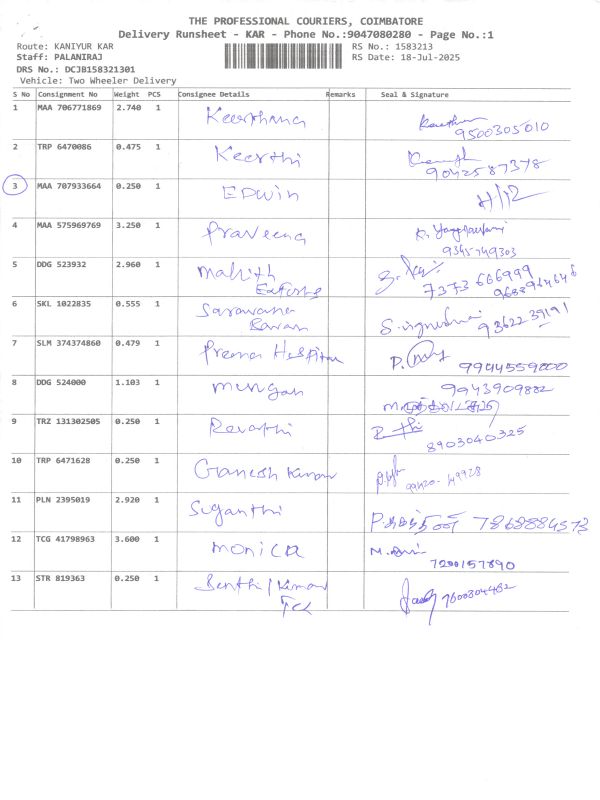 THE PROFESSIONAL COURIERS, COIMBATORE
Delivery Runsheet - KAR - Phone No.:9047080280 - Page No.:1
Route: KANIYUR KAR RS No.: 1583213
Staff: PALANIRAJ RS Date: 18-Jul-2025
DRS No.: DCJB158321301
Vehicle: Two Wheeler Delivery
S No Consignment No Weight PCS Consignee Details Remarks Seal & Signature
1 MAA 706771869 2.740 1 Keerthana
9500305010
2 TRP 6470086 0.475 1 Keerthi
9042587378
3 MAA 707933664 0.250 1 EDWIN
4 MAA 575969769 3.250 1 Praveena
9345749303
5 DDG 523932 2.960 1 Mahith
7373 666999
6 SKL 1022835 0.555 1 Saravana
9362239191
7 SLM 374374860 0.479 1 Prema Hospital
9944559000
8 DDG 524000 1.103 1 Murugan
9943909882
9 TRZ 131302505 0.250 1 Revathi
8903040325
10 TRP 6471628 0.250 1 Ganesh Kumar
99420-49928
11 PLN 2395019 2.920 1 Suganthi
7868884573
12 TCG 41798963 3.600 1 Monica
7200157890
13 STR 819363 0.250 1 Senthil Kumar
7600304482